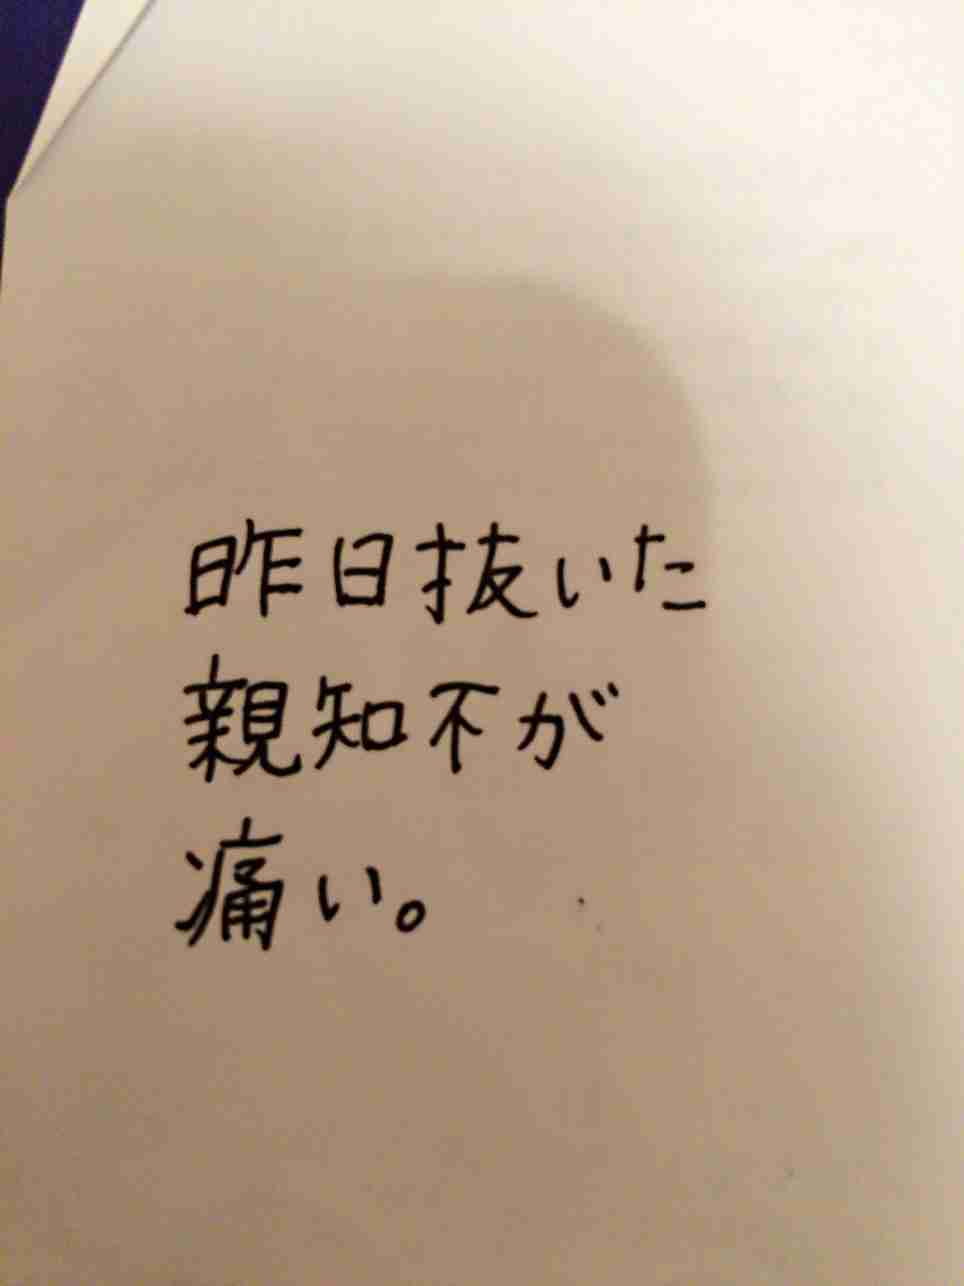 昨日抜いた
親知不が
痛い。